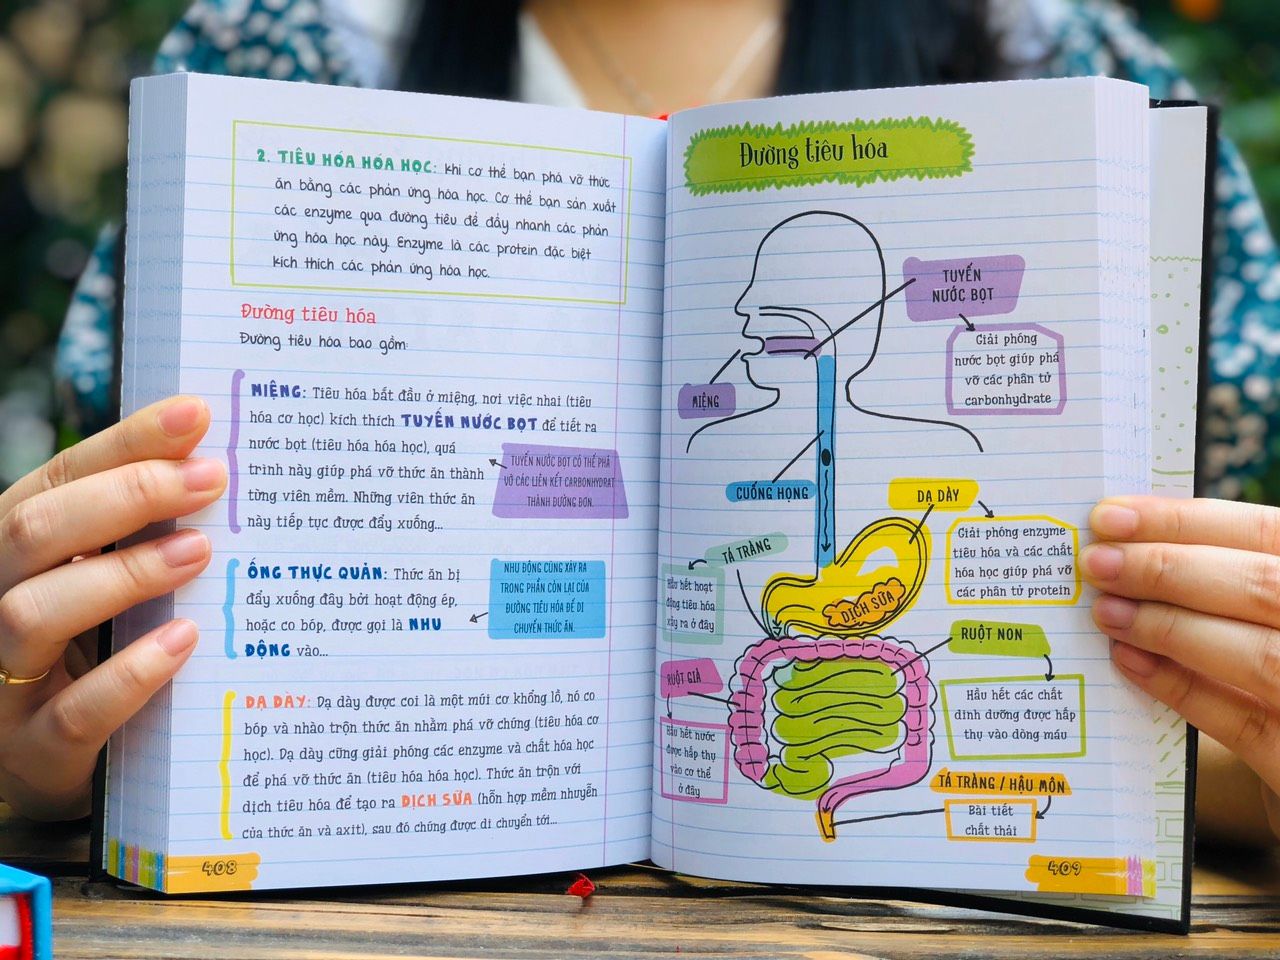 2. TIÊU HÓA HÓA HỌC: khi cơ thể bạn phá vỡ thức
ăn bằng các phản ứng hóa học. Cơ thể bạn sản xuất
các enzyme qua đường tiêu để đẩy nhanh các phản
ứng hóa học này. Enzyme là các protein đặc biệt
kích thích các phản ứng hóa học.
Đường tiêu hóa
Đường tiêu hóa bao gồm:
MIỆNG: Tiêu hóa bắt đầu ở miệng, nơi việc nhai (tiêu
hóa cơ học) kích thích TUYẾN NƯỚC BỌT để tiết ra
nước bọt (tiêu hóa hóa học), quá
trình này giúp phá vỡ thức ăn thành
từng viên mềm. Những viên thức ăn
này tiếp tục được đẩy xuống...
TUYẾN NƯỚC BỌT CÓ THỂ PHÁ
VỠ CÁC LIÊN KẾT CARBONHYDRAT
THÀNH ĐƯỜNG ĐƠN.
ỐNG THỰC QUẢN: Thức ăn bị
đẩy xuống đây bởi hoạt động ép,
hoặc co bóp, được gọi là NHU
ĐỘNG vào...
NHU ĐỘNG CŨNG XẢY RA
TRONG PHẦN CÒN LẠI CỦA
ĐƯỜNG TIÊU HÓA ĐỂ DI
CHUYỂN THỨC ĂN.
DẠ DÀY: Dạ dày được coi là một múi cơ khổng lồ, nó co
bóp và nhào trộn thức ăn nhằm phá vỡ chúng (tiêu hóa cơ
học). Dạ dày cũng giải phóng các enzyme và chất hóa học
để phá vỡ thức ăn (tiêu hóa hóa học). Thức ăn trộn với
dịch tiêu hóa để tạo ra DỊCH SỮA (hỗn hợp mềm nhuyễn
của thức ăn và axit), sau đó chúng được di chuyển tới...
408
Đường tiêu hóa
TUYẾN
NƯỚC BỌT
Giải phóng
nước bọt giúp phá
vỡ các phân tử
carbonhydrate
MIỆNG
CUỐNG HỌNG
DẠ DÀY
Giải phóng enzyme
tiêu hóa và các chất
hóa học giúp phá vỡ
các phân tử protein
TÁ TRÀNG
Hầu hết hoạt
động tiêu hóa
xảy ra ở đây
DỊCH SỮA
RUỘT NON
Hầu hết các chất
dinh dưỡng được hấp
thụ vào dòng máu
RUỘT GIÀ
Hầu hết nước
được hấp thụ
vào cơ thể
ở đây
TÁ TRÀNG / HẬU MÔN
Bài tiết
chất thải
409